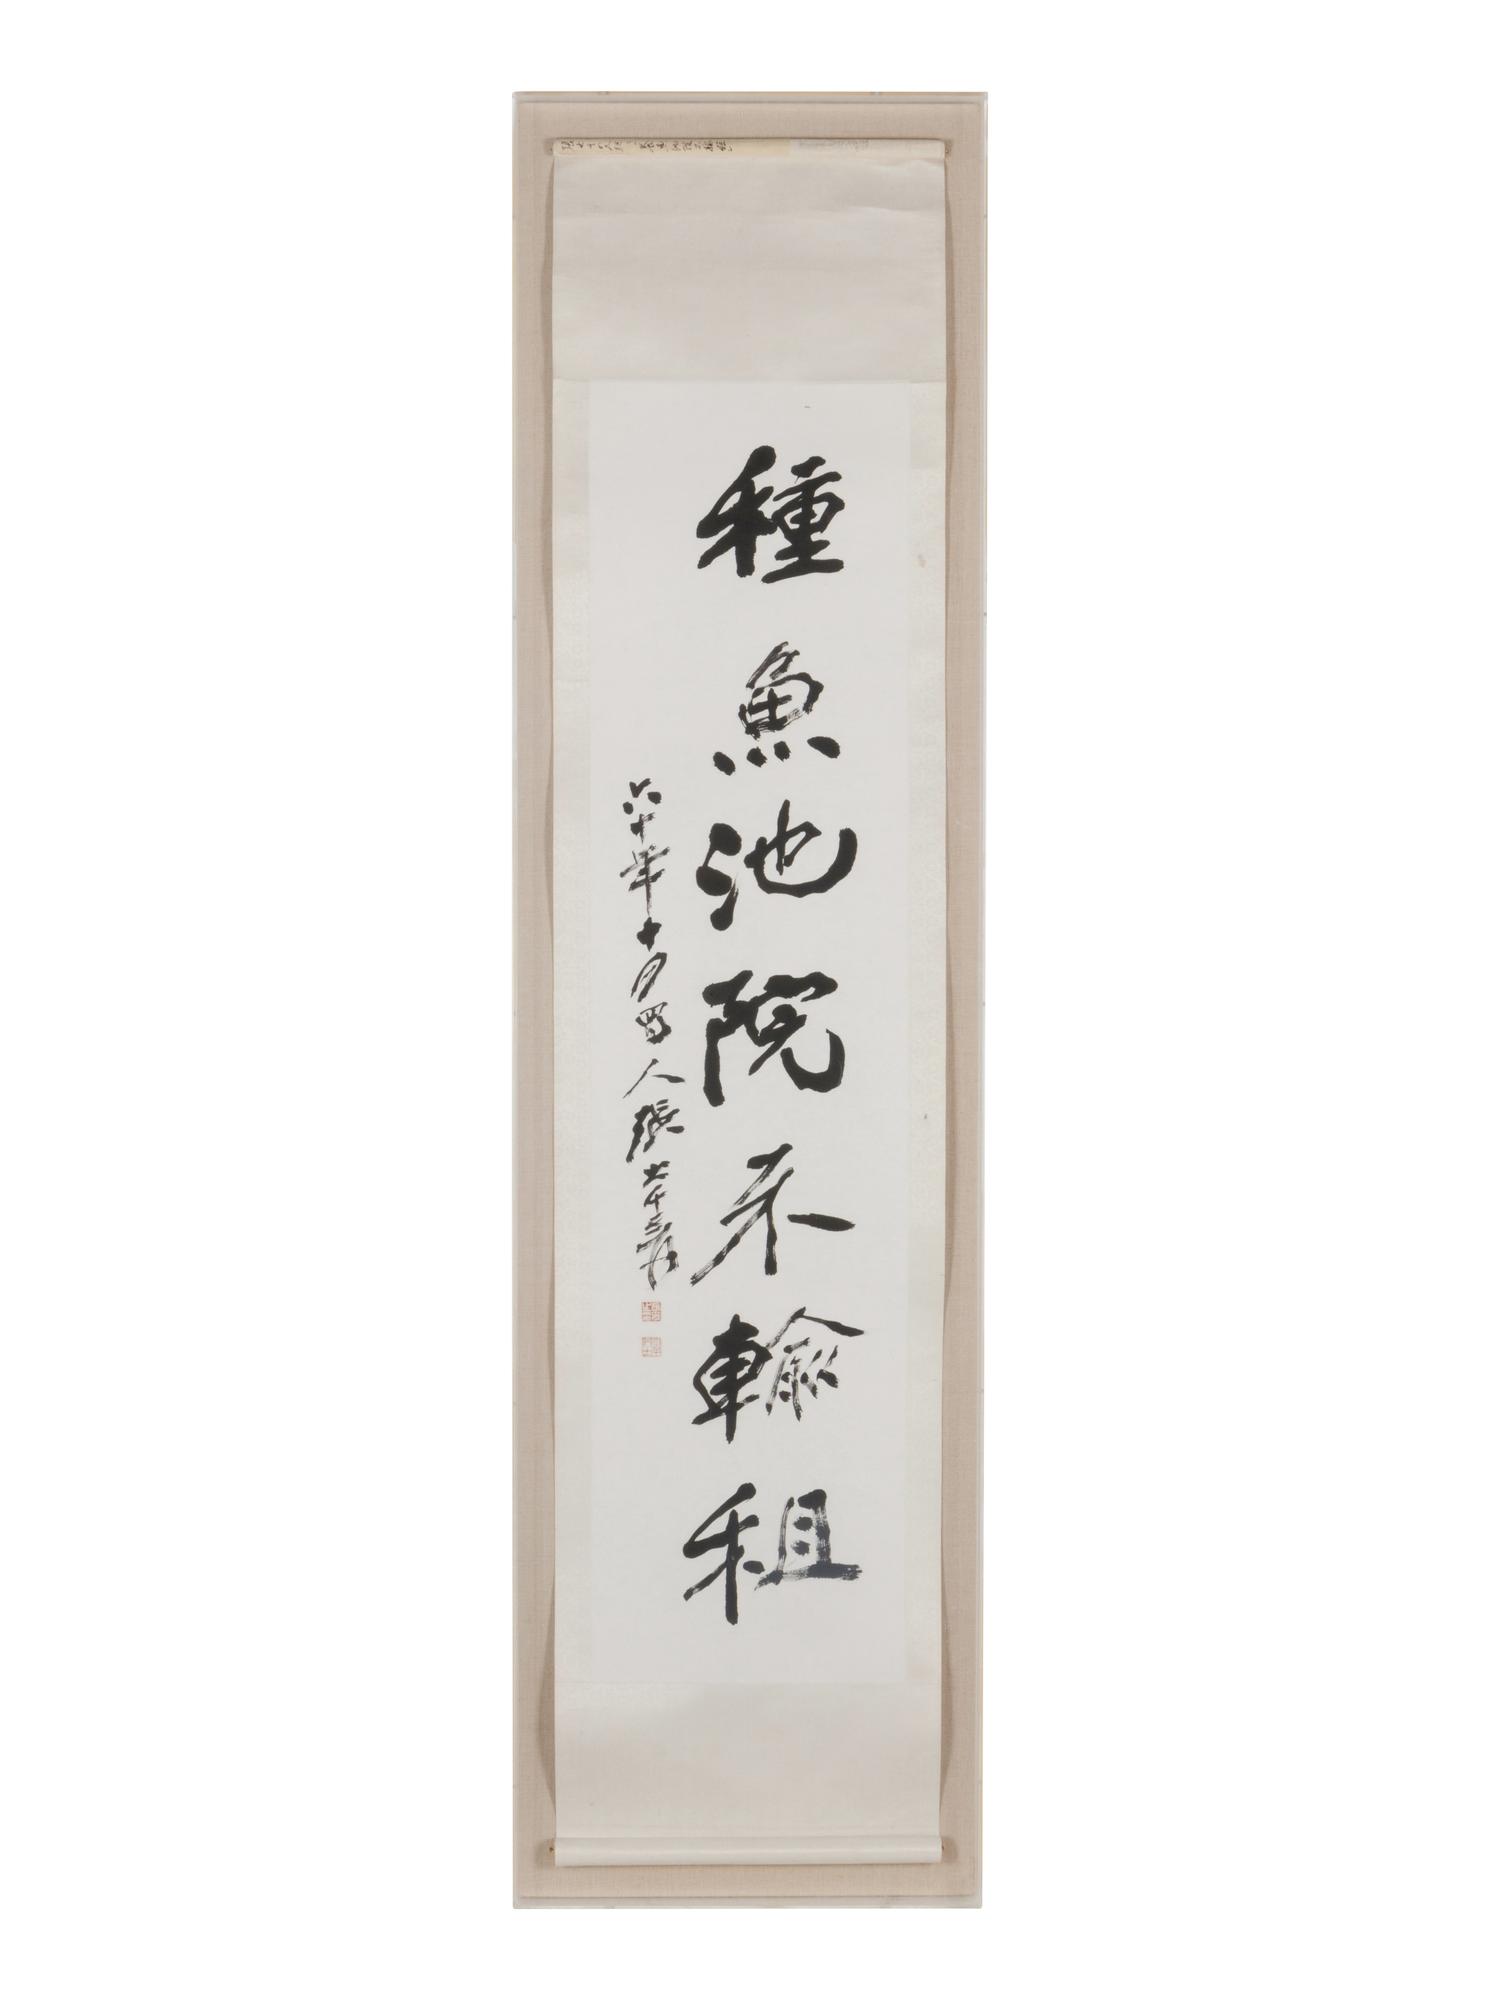 種魚池院不輸租
六十年十月蜀人張大千爰